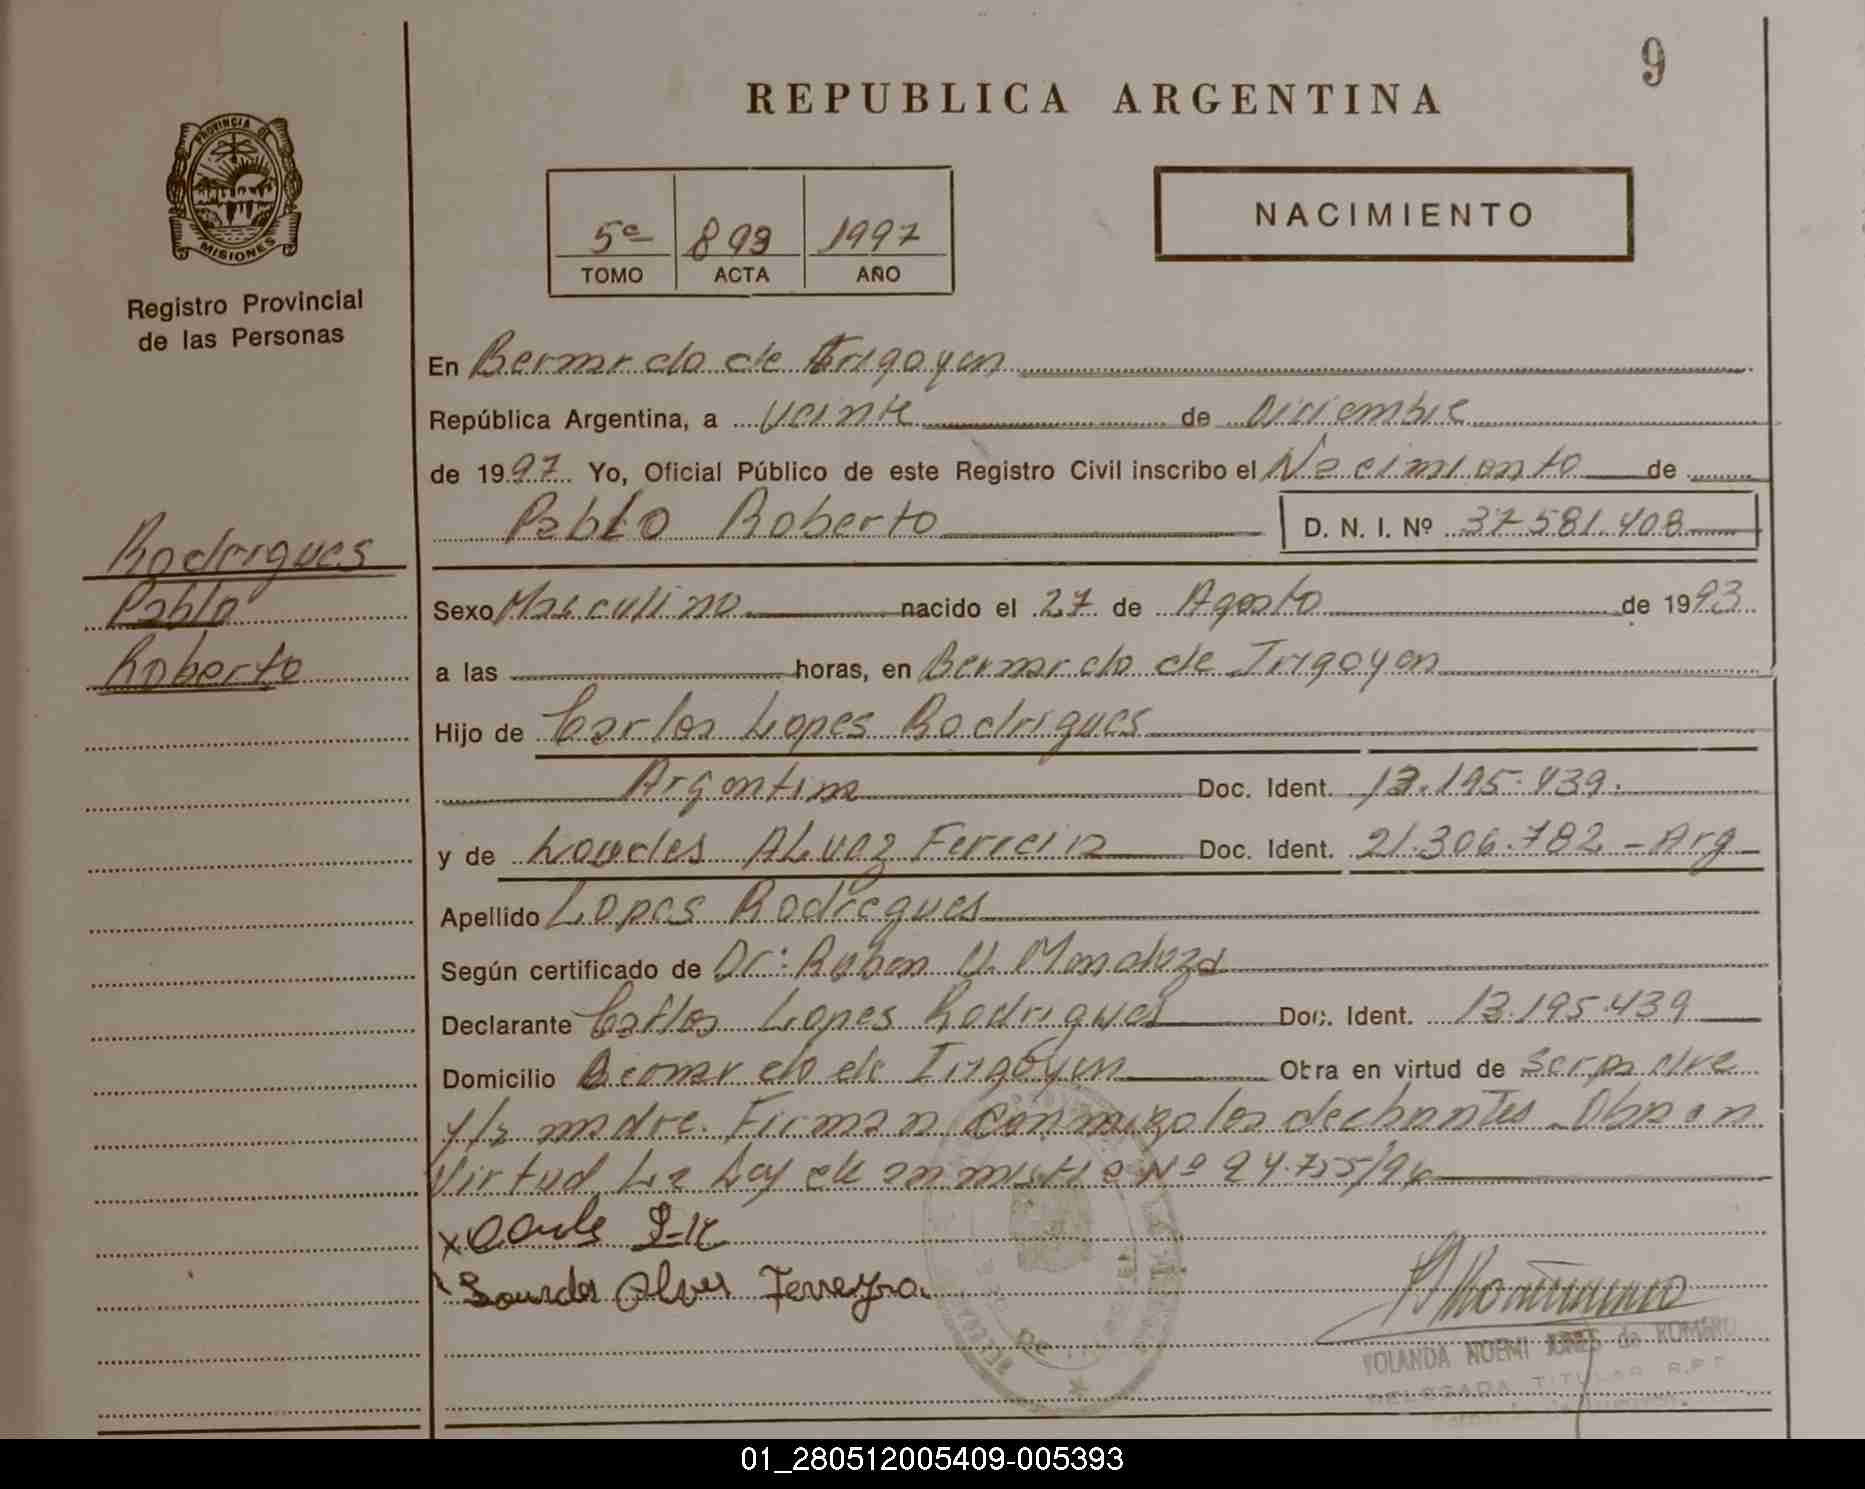 9
REPUBLICA ARGENTINA
PROVINCIA DE
MISIONES
Registro Provincial
de las Personas
5º 899 1997
TOMO ACTA AÑO
NACIMIENTO
En Bernardo de Irigoyen
República Argentina, a veinte de Diciembre
de 1997. Yo, Oficial Público de este Registro Civil inscribo el Nacimiento de
Pablo Roberto D. N. I. Nº 37.581.408
Rodrigues
Pablo
Roberto
Sexo Masculino nacido el 27 de Agosto de 1993
a las horas, en Bernardo de Irigoyen
Hijo de Carlos Lopes Rodrigues
Argentina Doc. Ident. 13.195.439.
y de Lourdes Alvez Ferreira Doc. Ident. 21.306.782 - Arg
Apellido Lopes Rodrigues
Según certificado de Dr: Ruben V. Mendoza
Declarante Carlos Lopes Rodrigues Doc. Ident. 13.195.439
Domicilio Bernardo de Irigoyen Obra en virtud de Ser padre
y la madre. Firman conmigo los declarantes. Obra en
Virtud La Ley de amnistia Nº 24.755/96
x Carlos
Lourdes Alves Ferreyra
YOLANDA NOEMI JUNES de ROMANO
DELEGADA TITULAR R.P.P.
01_280512005409-005393